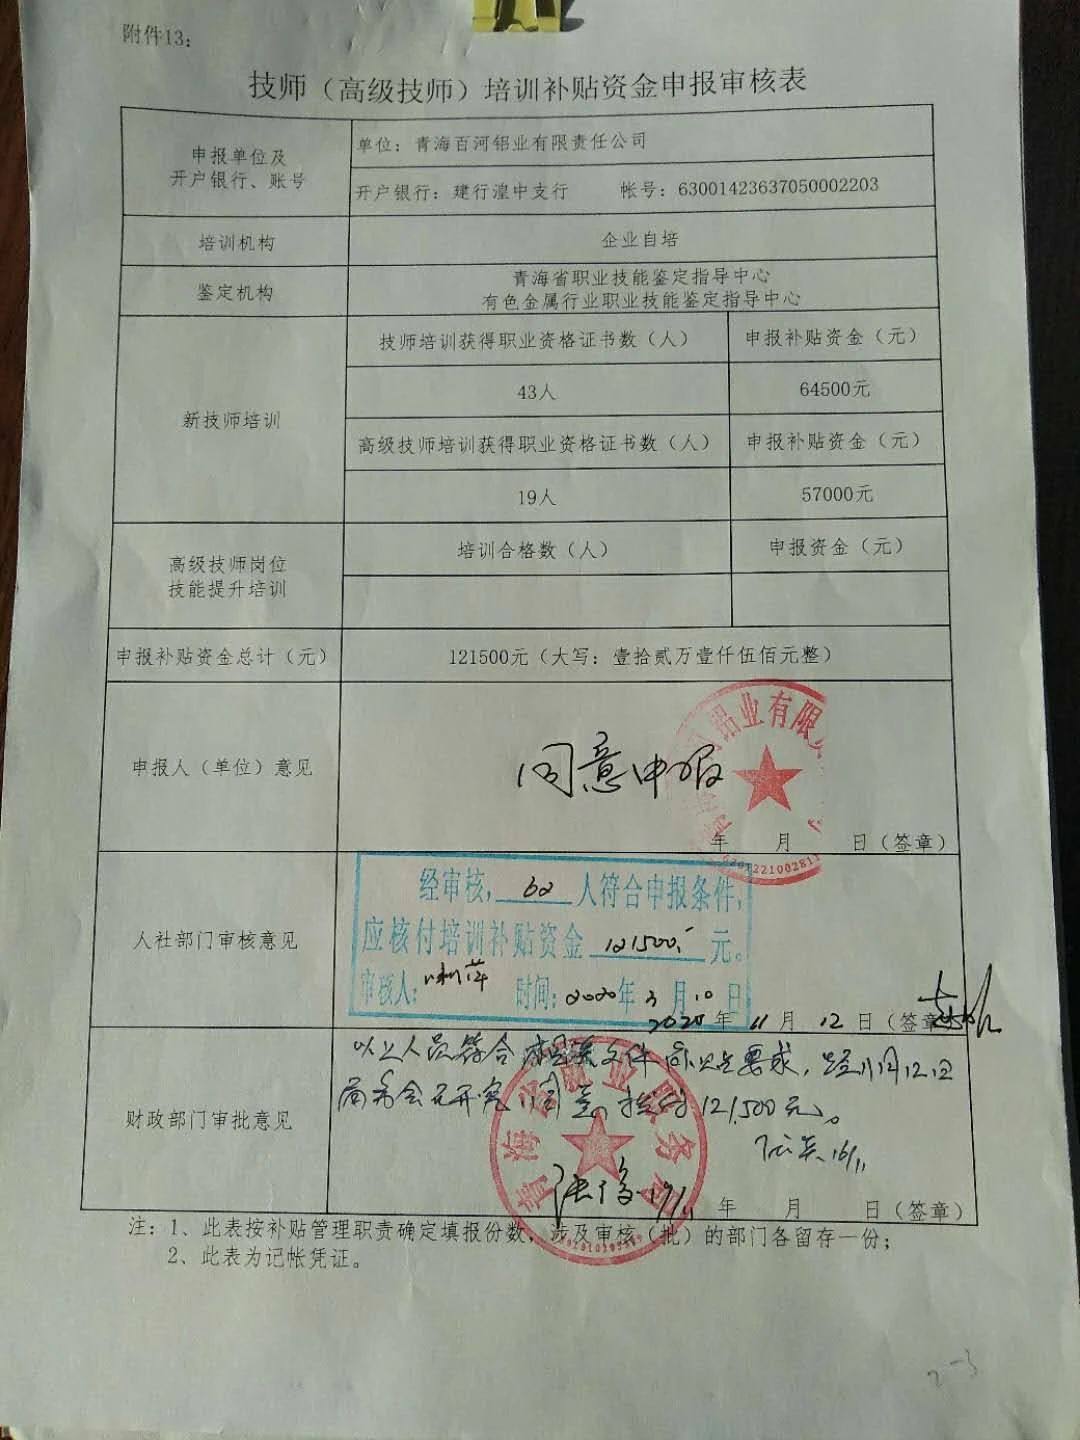 附件13：
技师（高级技师）培训补贴资金申报审核表
申报单位及
开户银行、账号
单位：青海百河铝业有限责任公司
开户银行：建行湟中支行 帐号：63001423637050002203
培训机构
企业自培
鉴定机构
青海省职业技能鉴定指导中心
有色金属行业职业技能鉴定指导中心
新技师培训
技师培训获得职业资格证书数（人） 申报补贴资金（元）
43人 64500元
高级技师培训获得职业资格证书数（人） 申报补贴资金（元）
19人 57000元
高级技师岗位
技能提升培训
培训合格数（人） 申报资金（元）
申报补贴资金总计（元） 121500元（大写：壹拾贰万壹仟伍佰元整）
申报人（单位）意见
同意申报
铝业有限
年 月 日（签章）
人社部门审核意见
经审核，62人符合申报条件，
应核付培训补贴资金121500元。
审核人： 时间：2020年 月10日
2020年11月12日（签章
财政部门审批意见
以上人员符合相关文件 要求，经11月12日
局 会 研究，同意 拨付121,500元。
16/11
年 月 日（签章）
注：1、此表按补贴管理职责确定填报份数，涉及审核（批）的部门各留存一份；
2、此表为记帐凭证。
2-3